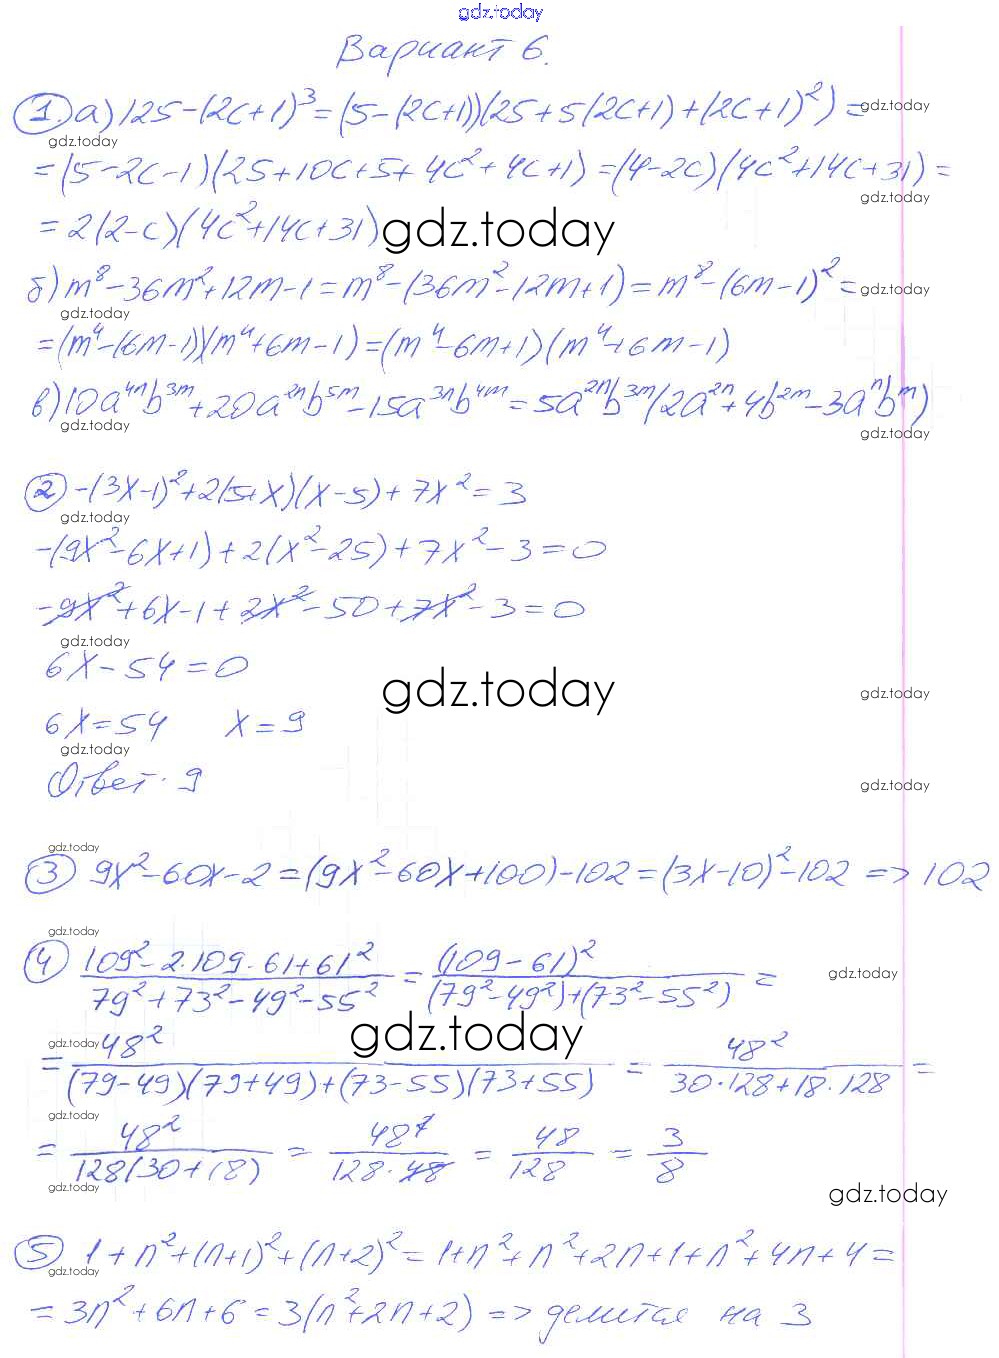 gdz.today
Вариант 6.
1. а) 125-(2c+1)³=(5-(2c+1))(25+5(2c+1)+(2c+1)²)=
gdz.today
gdz.today
=(5-2c-1)(25+10c+5+4c²+4c+1)=(4-2c)(4c²+14c+31)=
gdz.today
=2(2-c)(4c²+14c+31)
gdz.today
б) m⁸-36m²+12m-1=m⁸-(36m²-12m+1)=m⁸-(6m-1)²=
gdz.today
gdz.today
=(m⁴-(6m-1))(m⁴+6m-1)=(m⁴-6m+1)(m⁴+6m-1)
в) 10a⁴ⁿb³ᵐ+20a²ⁿb⁵ᵐ-15a³ⁿb⁴ᵐ=5a²ⁿb³ᵐ(2a²ⁿ+4b²ᵐ-3aⁿbᵐ)
gdz.today
gdz.today
2 -(3x-1)²+2(5+x)(x-5)+7x²=3
gdz.today
-(9x²-6x+1)+2(x²-25)+7x²-3=0
-9x²+6x-1+2x²-50+7x²-3=0
gdz.today
6x-54=0
gdz.today
gdz.today
6x=54 x=9
gdz.today
Ответ: 9
gdz.today
gdz.today
3 9x²-60x-2=(9x²-60x+100)-102=(3x-10)²-102 => 102
gdz.today
4 (109²-2·109·61+61²)/(79²+73²-49²-55²) = (109-61)²/((79²-49²)+(73²-55²)) =
gdz.today
gdz.today
gdz.today
= 48²/((79-49)(79+49)+(73-55)(73+55)) = 48²/(30·128+18·128) =
gdz.today
= 48²/(128(30+18)) = 48²/(128·48) = 48/128 = 3/8
gdz.today
gdz.today
5 1+n²+(n+1)²+(n+2)²=1+n²+n²+2n+1+n²+4n+4=
gdz.today
=3n²+6n+6=3(n²+2n+2) => делится на 3